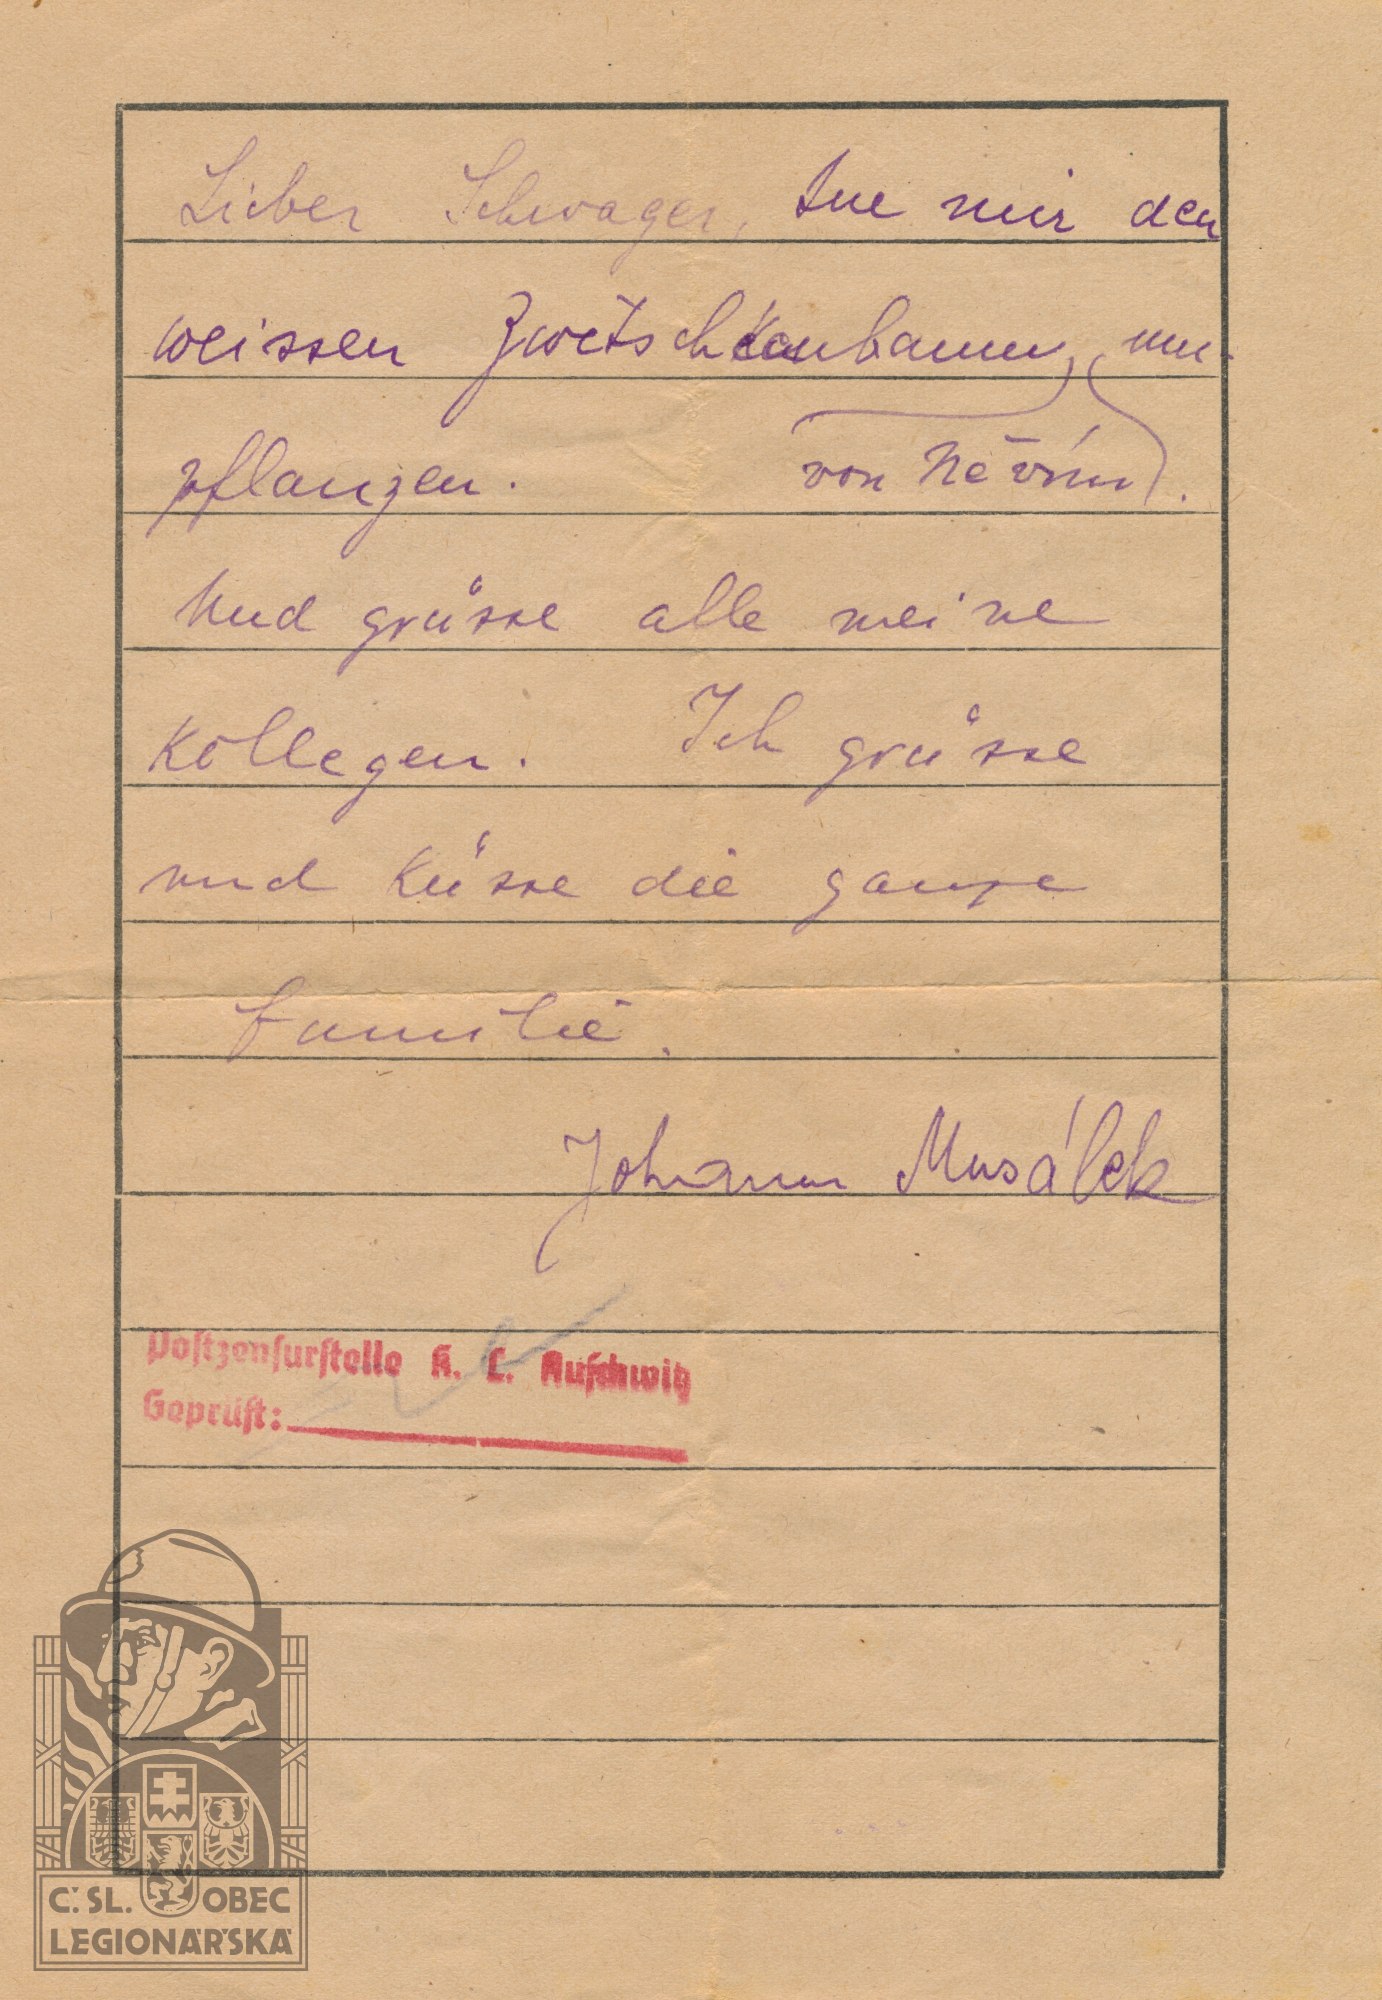 Lieber Schwager, tue mir den
weissen Zwetschkenbaum, um-
pflanzen. von Névrím.
Und grüsse alle meine
Kollegen. Ich grüsse
und Küsse die ganze
Familie.
Johann Musálek
Postzensurstelle K. L. Auschwitz
Geprüft:
Č. SL. OBEC
LEGIONÁŘSKÁ